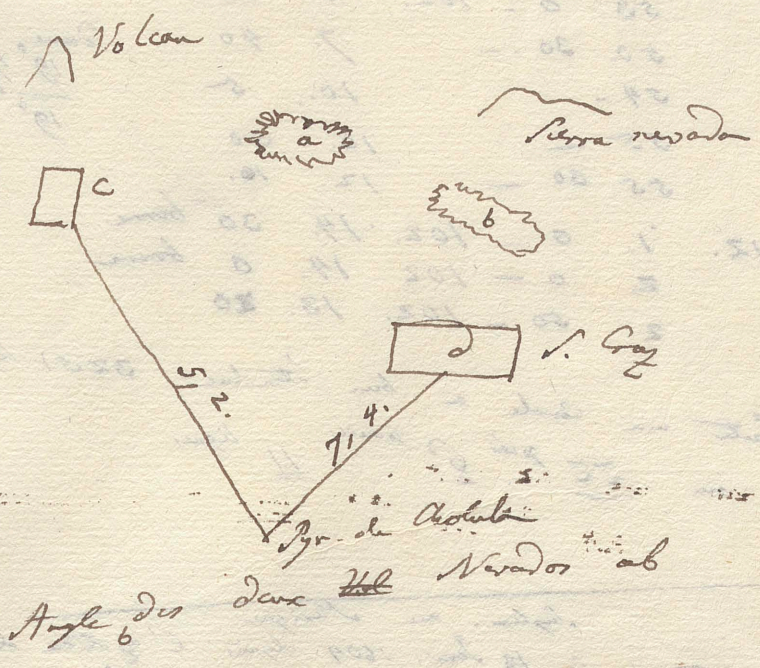 Volcan
a
Sierra nevada
c
b
d
S. Cruz
52.
71 4.
Pyr. de Cholula
Angle des deux Nevados ab
6